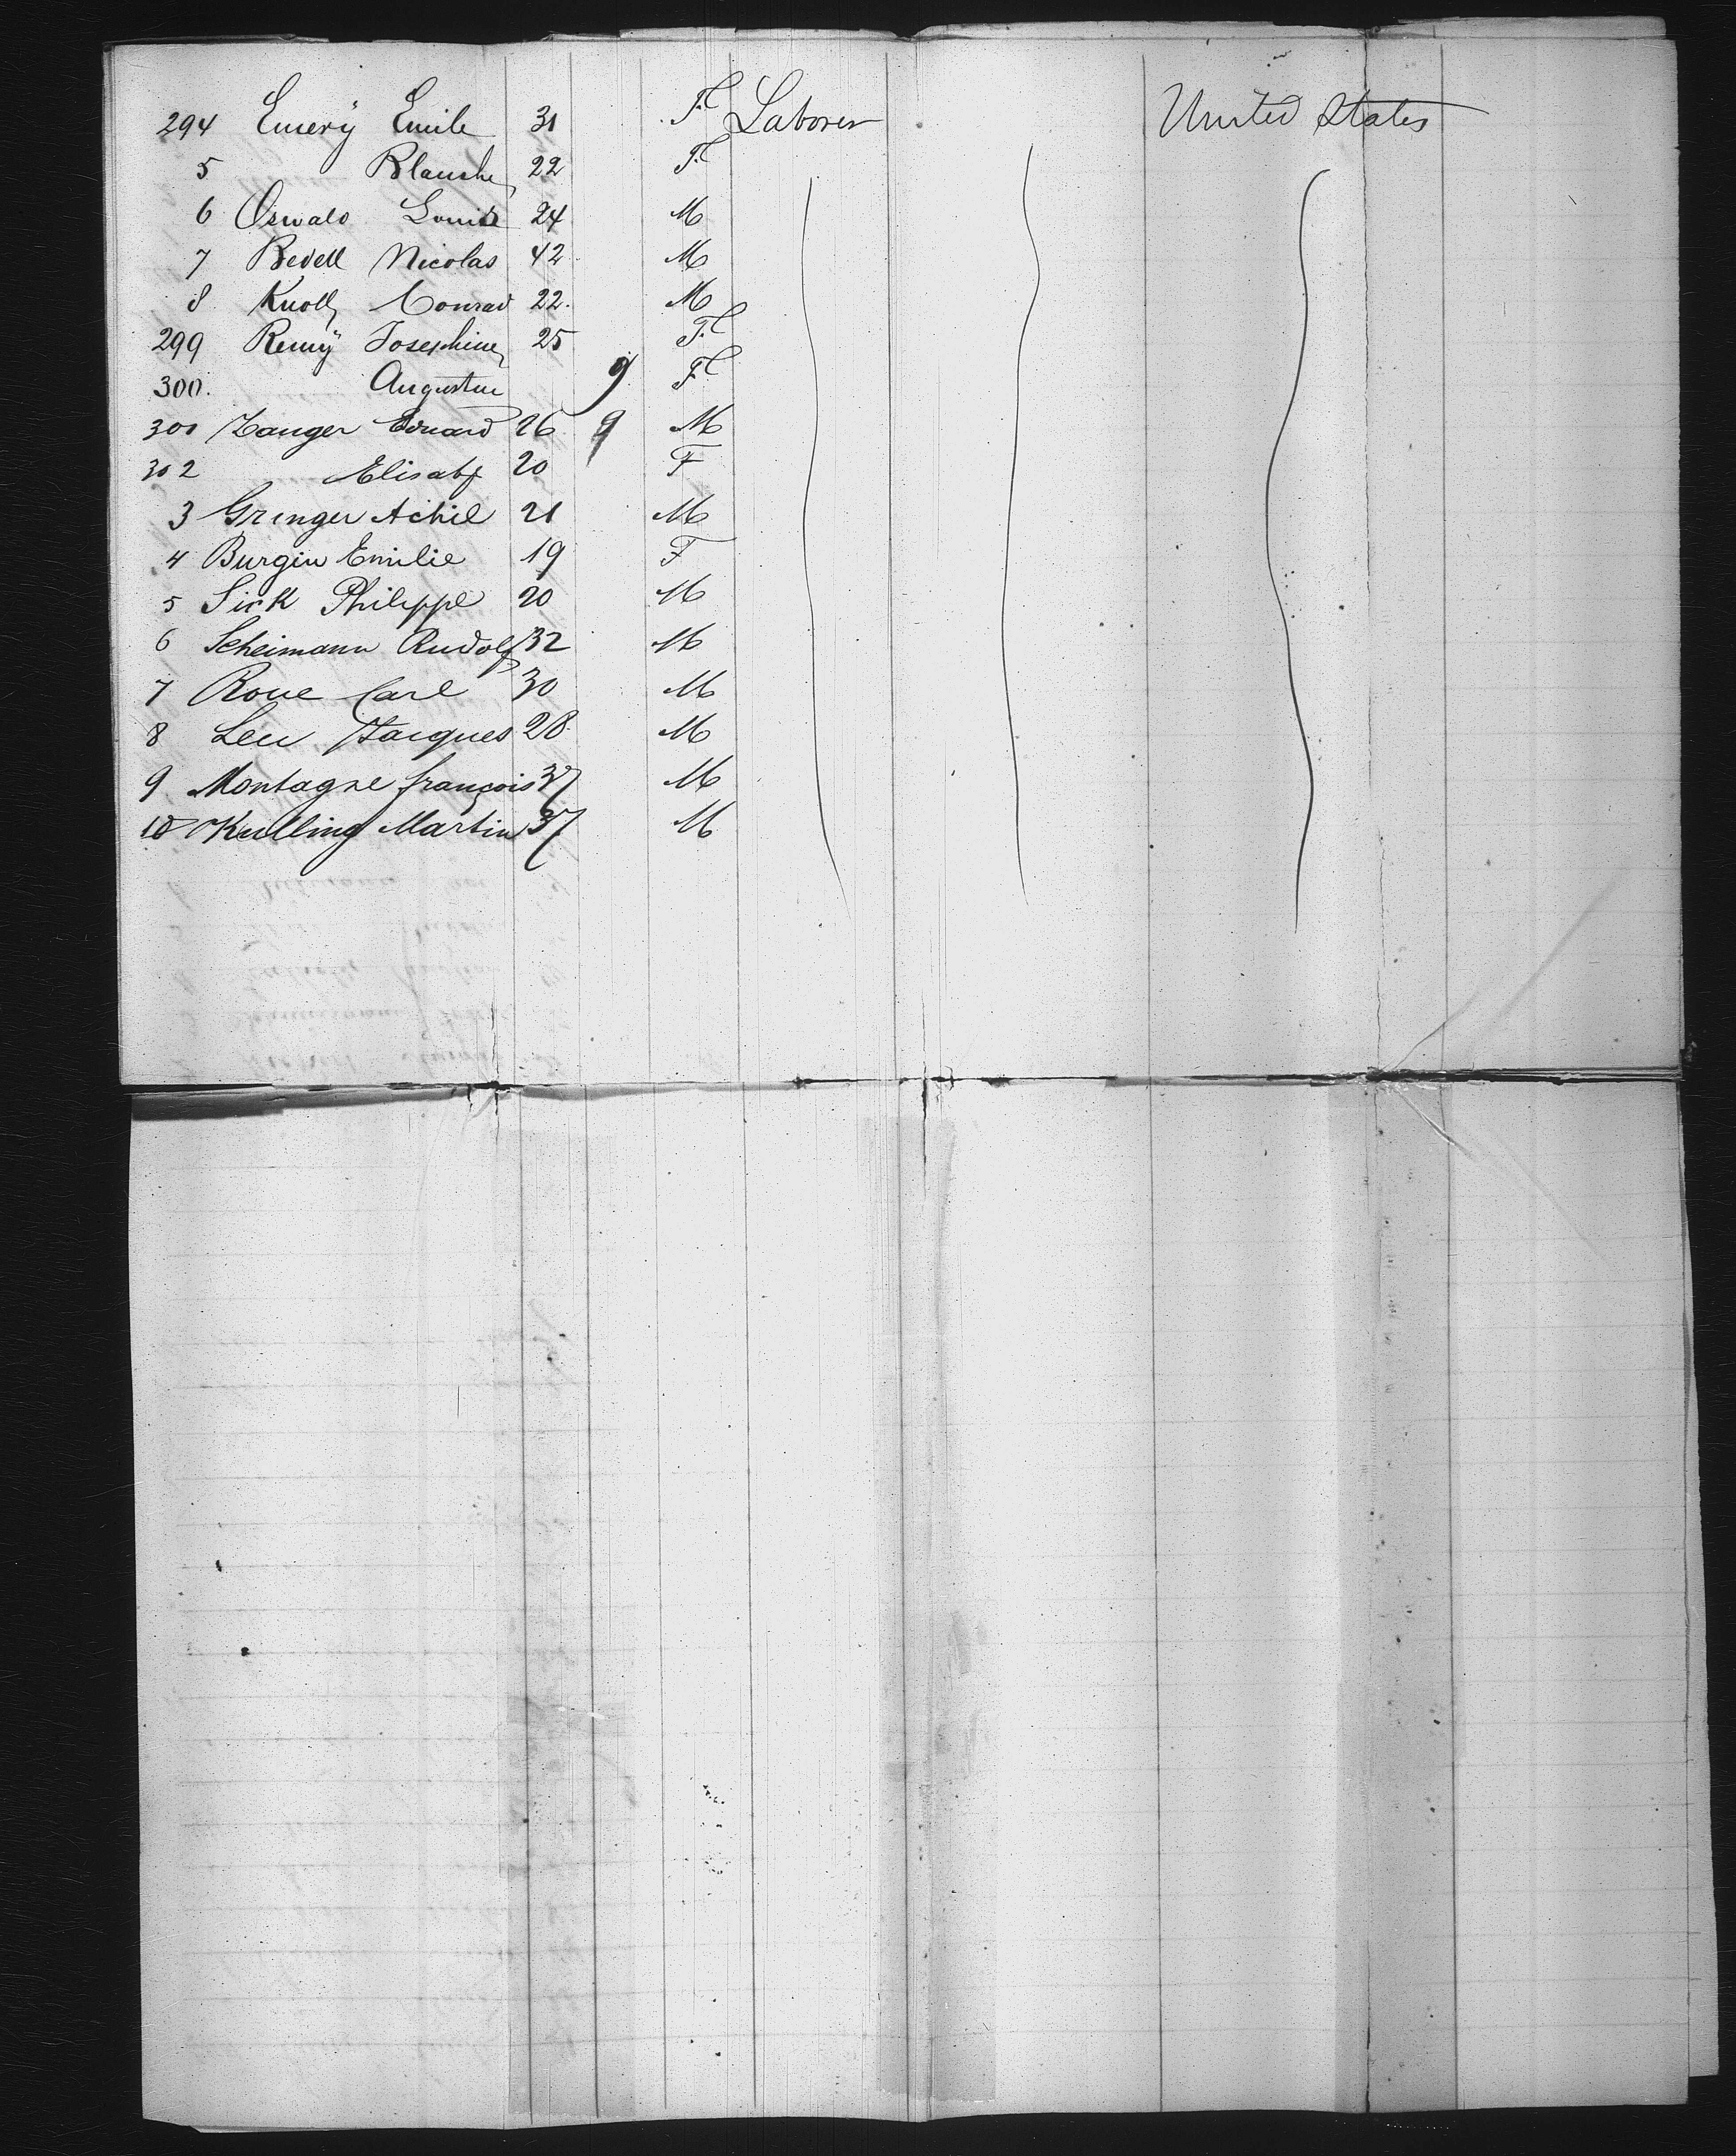 294 Emery Emile 31 F Laborer United States
5 Blanche 22 F
6 Oswald Louise 24 M
7 Bedell Nicolas 42 M
8 Knoll Conrad 22. M
299 Remy Josephine 25 F
300. Augustine 9 F
301 Zanger Eduard 26 9 M
302 Elisabt 20 F
3 Gringer Achil 21 M
4 Burgin Emilie 19 F
5 Sick Philippe 20 M
6 Scheimann Rudolf 32 M
7 Roue Carl 30 M
8 Leu Jacques 28 M
9 Montagne françois 37 M
10 Kulling Martin 37 M